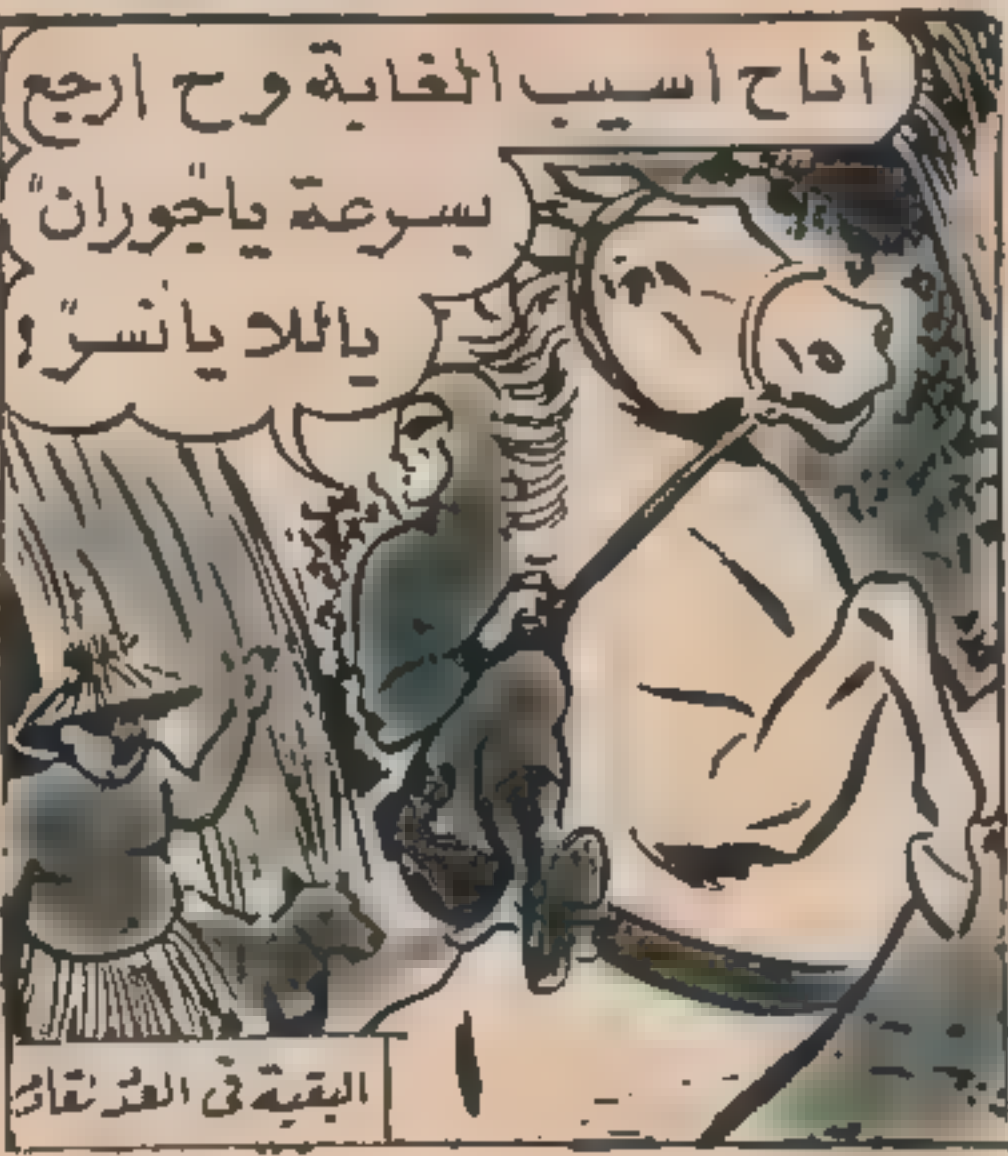 أناح اسيب الغابة وح ارجع
بسرعة يا "جوران"
ياللا يا "نسر" !
البقية فى العدد القادم